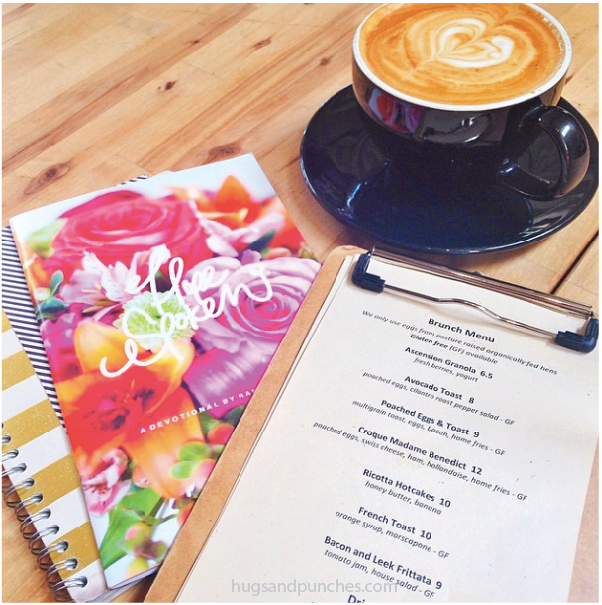 She
Spoken
A DEVOTIONAL BY
Brunch Menu
We only use eggs from pasture raised organically fed hens
Gluten free (GF) available
Ascension Granola 6.5
fresh berries, yogurt
Avocado Toast 8
poached eggs, cilantro roast pepper salad - GF
Poached Eggs & Toast 9
multigrain toast, eggs, home fries - GF
Croque Madame Benedict 12
poached eggs, swiss cheese, ham, hollandaise, home fries - GF
Ricotta Hotcakes 10
honey butter, banana
French Toast 10
orange syrup, marscapone - GF
Bacon and Leek Frittata 9
tomato jam, house salad - GF
hugsandpunches.com